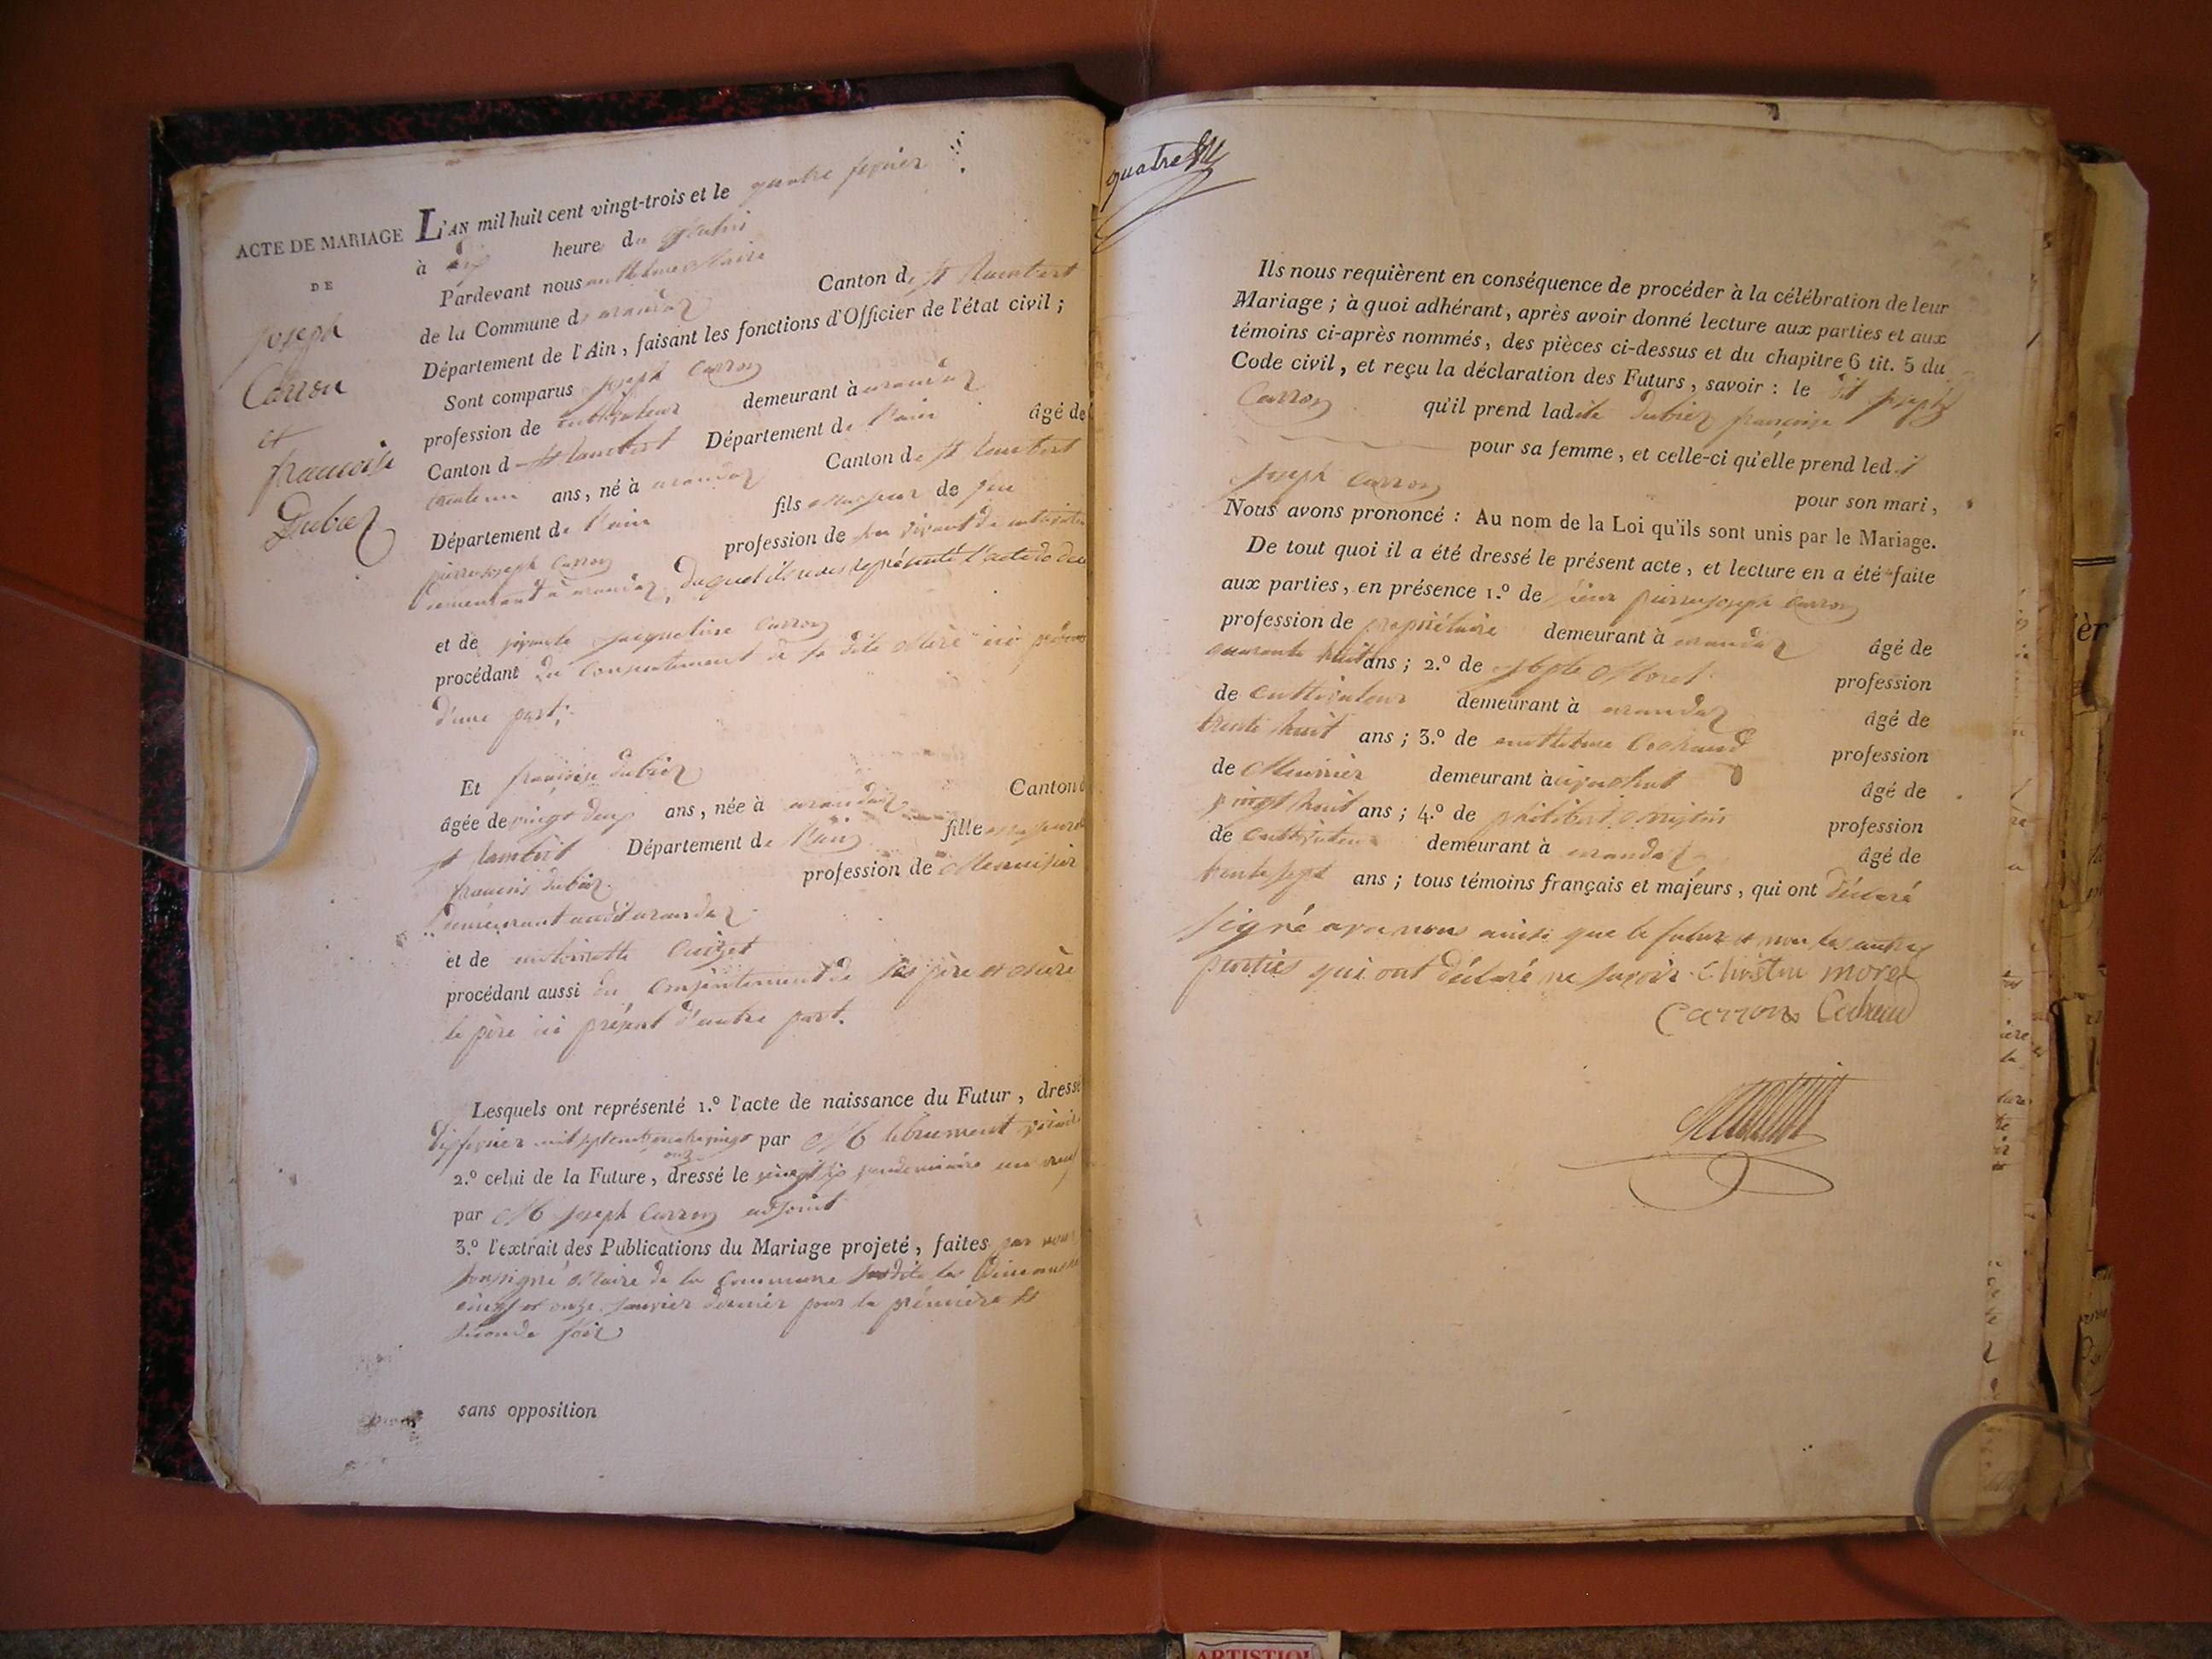 ACTE DE MARIAGE
DE
joseph
Carron
et
francoise
Dubiez
L'AN mil huit cent vingt-trois et le quatre fevrier
à dix heure du Matin
Pardevant nous anthelme Maire
de la Commune de arandaz Canton de st Rambert
Département de l'Ain, faisant les fonctions d'Officier de l'état civil;
Sont comparus joseph Carron
profession de cultivateur demeurant à arandaz
Canton d st Rambert Département de l'ain âgé de
ans, né à arandaz Canton de st Rambert
Département de l'ain fils Majeur de feu
pierre joseph Carron profession de vivant de
demeurant à arandaz, duquel il nous represente l'acte de
et de jacqueline Carron
procédant du Consentement de sa dite Mère ici
d'une part;
Et françoise dubiez
âgée de vingt deux ans, née à arandaz Canton d
st Rambert Département de l'ain fille
francois dubiez profession de Menuisier
demeurant audit arandaz
et de antoinette
procédant aussi du Consentement de ses père et Mère
le père ici présent d'autre part.
Lesquels ont représenté 1.º l'acte de naissance du Futur, dressé
dix fevrier mil sept cent quatre vingt onze par M
2.º celui de la Future, dressé le vingt six vendemiaire an neuf
par M joseph Carron adjoint
3.º l'extrait des Publications du Mariage projeté, faites par nous
soussigné Maire de la Commune susdite les Dimanches
janvier dernier pour la première et
seconde fois
sans opposition
quatre
Ils nous requièrent en conséquence de procéder à la célébration de leur
Mariage; à quoi adhérant, après avoir donné lecture aux parties et aux
témoins ci-après nommés, des pièces ci-dessus et du chapitre 6 tit. 5 du
Code civil, et reçu la déclaration des Futurs, savoir: le dit joseph
Carron qu'il prend ladite dubiez françoise
pour sa femme, et celle-ci qu'elle prend led.t
joseph Carron pour son mari,
Nous avons prononcé: Au nom de la Loi qu'ils sont unis par le Mariage.
De tout quoi il a été dressé le présent acte, et lecture en a été faite
aux parties, en présence 1.º de sieur pierre joseph Carron
profession de propriétaire demeurant à arandaz âgé de
quarante huit ans; 2.º de Morel profession
de Cultivateur demeurant à arandaz âgé de
trente huit ans; 3.º de anthelme Cochaud profession
de Meunier demeurant à âgé de
vingt huit ans; 4.º de philibert profession
de Cultivateur demeurant à arandaz âgé de
trente sept ans; tous témoins français et majeurs, qui ont déclaré
signé avec nous ainsi que le futur et non les autres
parties qui ont déclaré ne savoir. morel
Carron Cochaud
ARTISTIQU